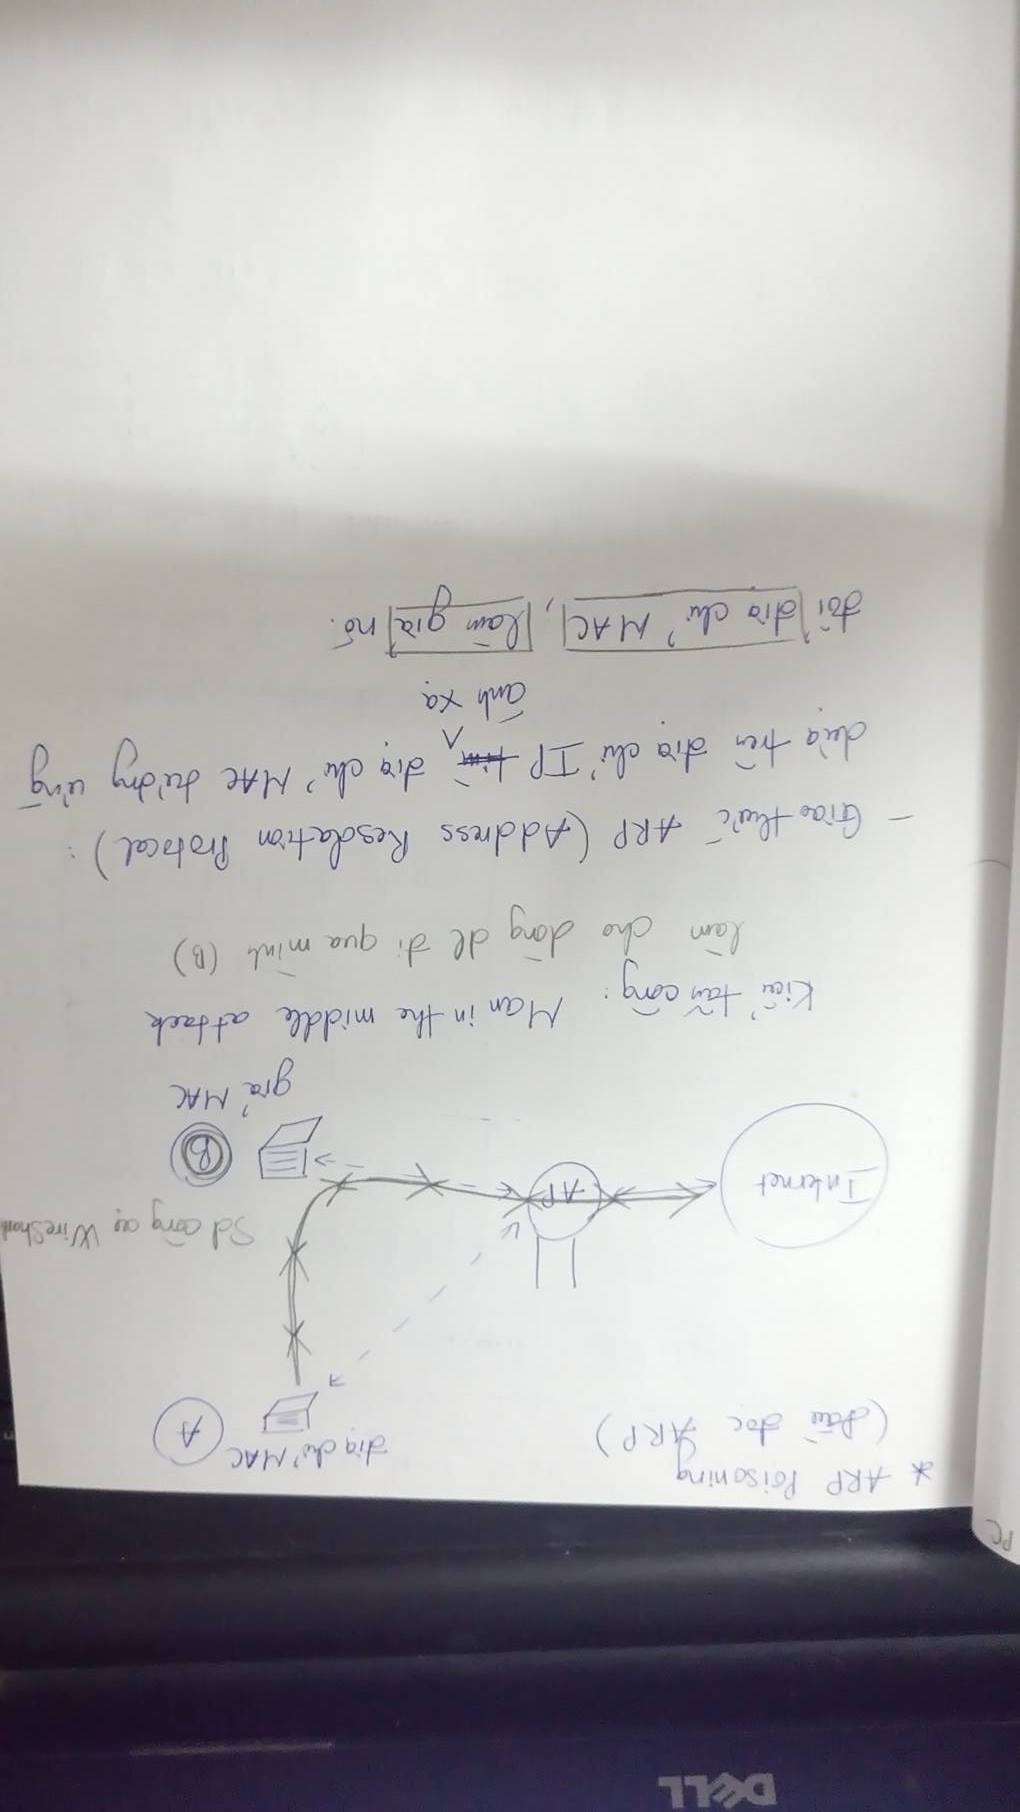 DELL
PC
* ARP Poisoning
(đầu độc ARP)
địa chỉ MAC
A
Sd công cụ WireShark
Internet
AP
B
giả MAC
Kiểu tấn công: Man in the middle attack
làm cho dòng dl đi qua mình (B)
- Giao thức ARP (Address Resolation Protocal) :
dựa trên địa chỉ IP tìm địa chỉ MAC tương ứng
ánh xạ
đổi địa chỉ MAC, làm giả nó.